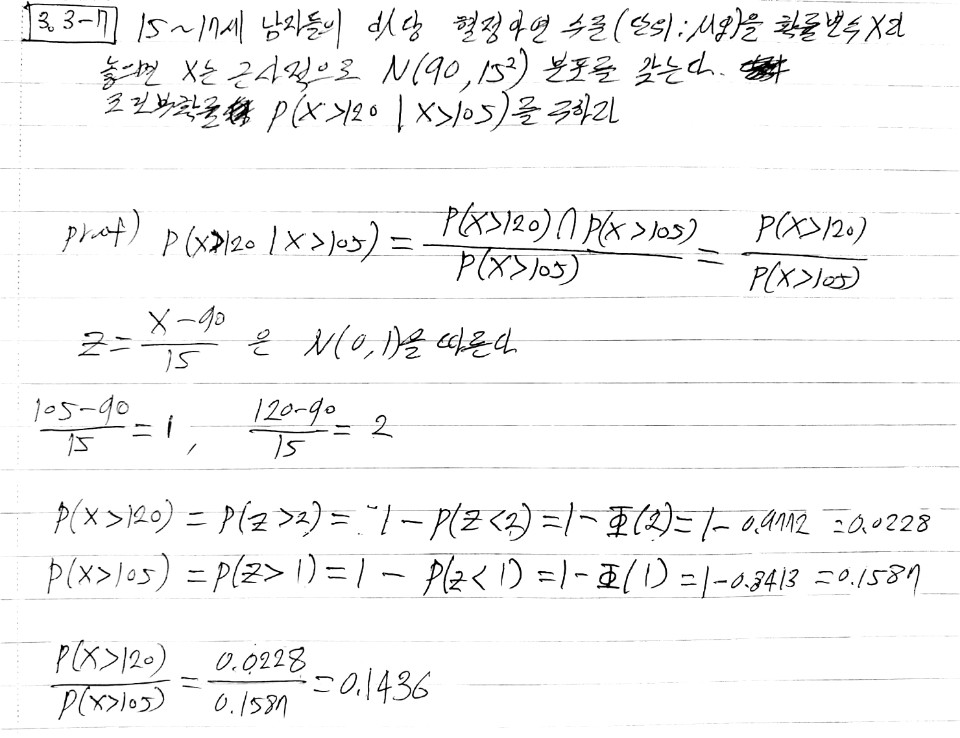 3.3-7 15~17세 남자들의 dl당 혈청아연 수준(단위:μg)을 확률변수 X라
놓으면 X는 근사적으로 N(90,15²) 분포를 갖는다.
조건부확률 P(X>120 | X>105)를 구하라
proof) P(X>120 | X>105) = P(X>120)∩P(X>105) / P(X>105) = P(X>120) / P(X>105)
Z = X-90 / 15 은 N(0,1)을 따른다
105-90 / 15 = 1, 120-90 / 15 = 2
P(X>120) = P(Z>2) = 1 - P(Z<2) = 1 - Φ(2) = 1 - 0.9772 = 0.0228
P(X>105) = P(Z>1) = 1 - P(Z<1) = 1 - Φ(1) = 1 - 0.8413 = 0.1587
P(X>120) / P(X>105) = 0.0228 / 0.1587 = 0.1436